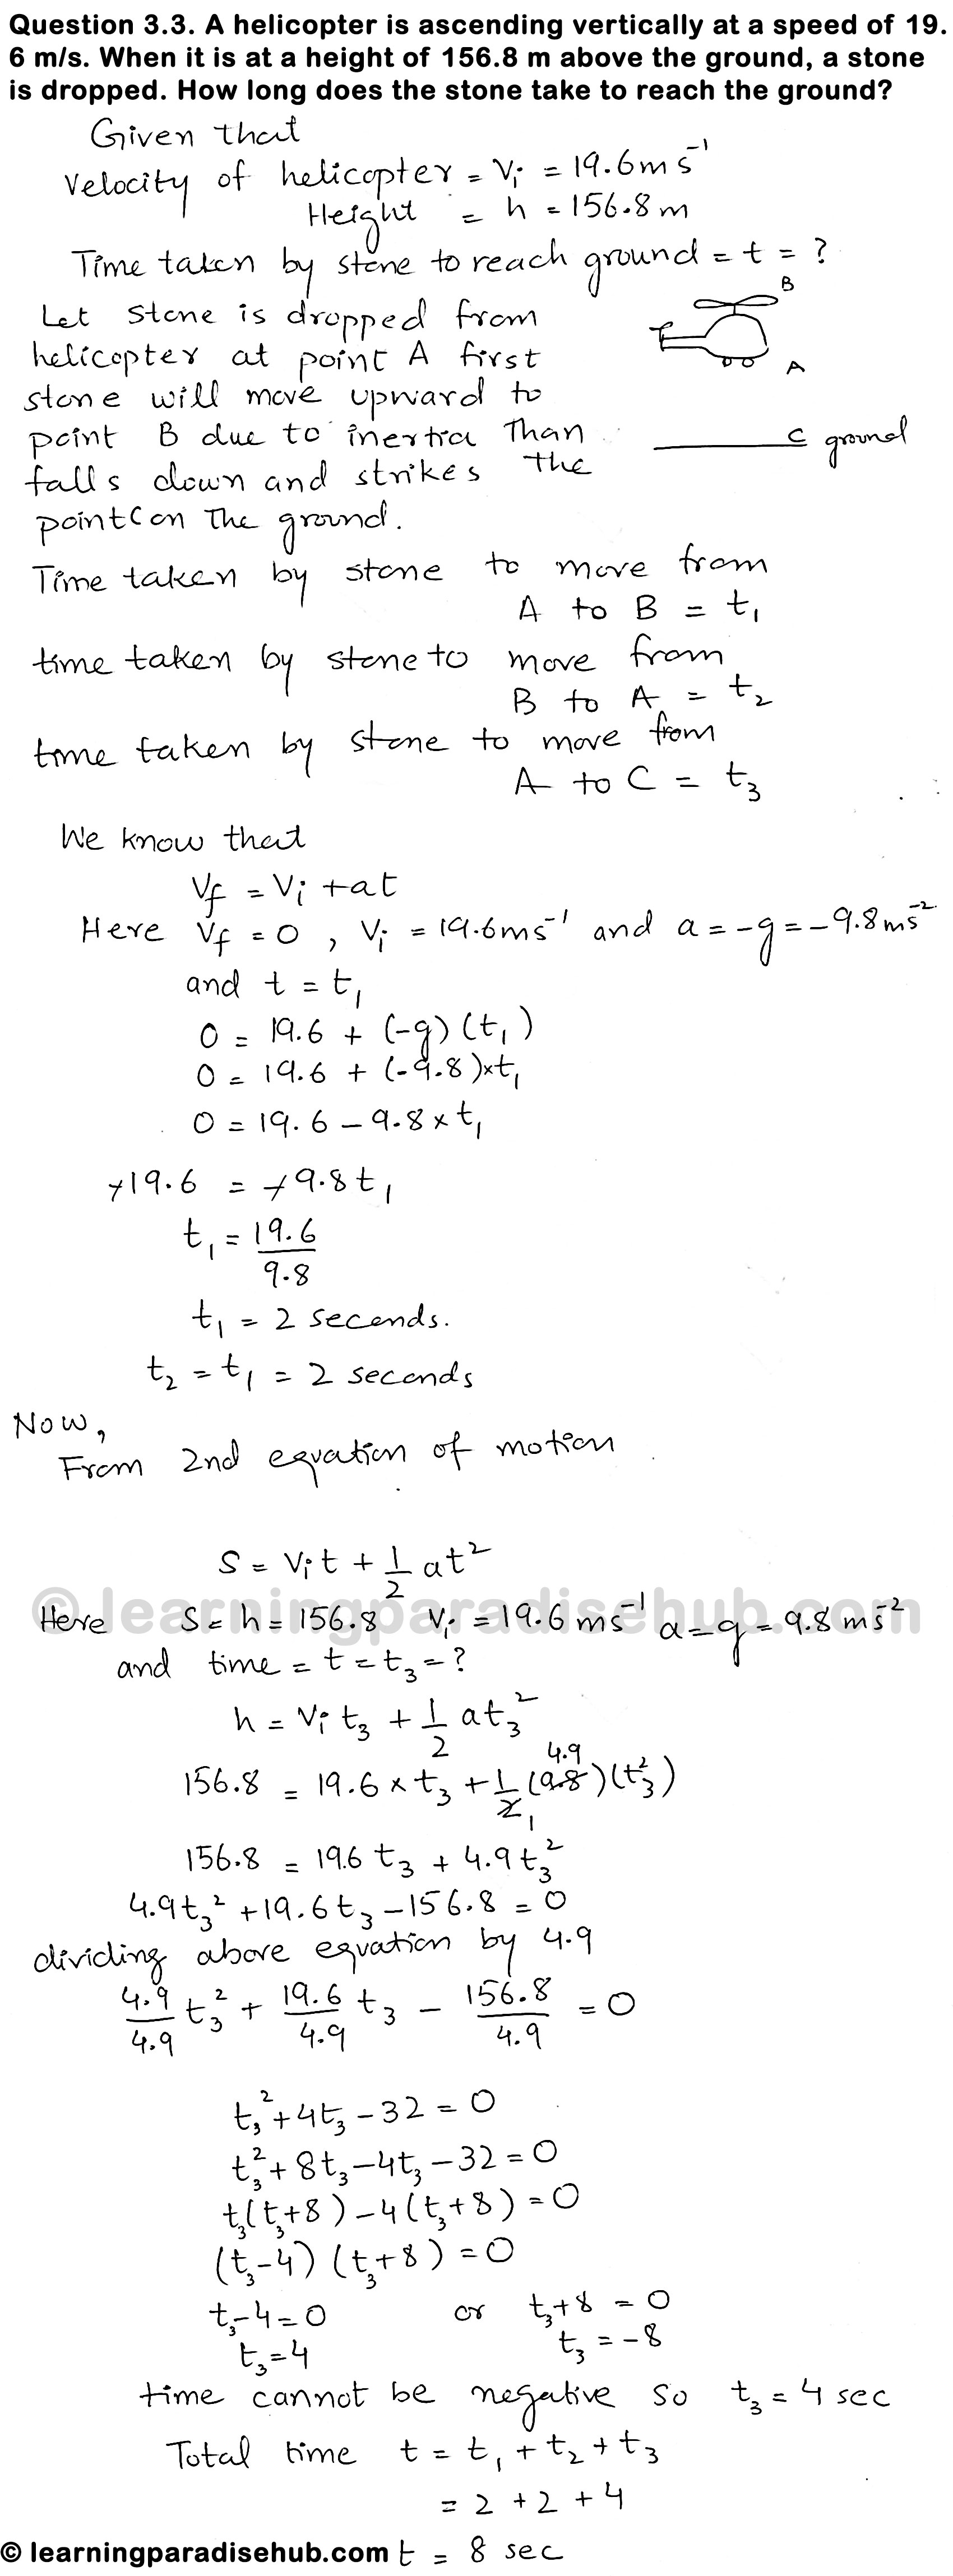 Question 3.3. A helicopter is ascending vertically at a speed of 19.
6 m/s. When it is at a height of 156.8 m above the ground, a stone
is dropped. How long does the stone take to reach the ground?
Given that
Velocity of helicopter = Vi = 19.6 m s⁻¹
Height = h = 156.8 m
Time taken by stone to reach ground = t = ?
B
Let stone is dropped from
helicopter at point A first
A
stone will move upward to
point B due to inertia Than
C ground
falls down and strikes the
point C on The ground.
Time taken by stone to move from
A to B = t₁
time taken by stone to move from
B to A = t₂
time taken by stone to move from
A to C = t₃
We know that
Vf = Vi + at
Here Vf = 0 , Vi = 19.6 ms⁻¹ and a = -g = -9.8 ms⁻²
and t = t₁
0 = 19.6 + (-g) (t₁)
0 = 19.6 + (-9.8)×t₁
0 = 19.6 - 9.8 × t₁
-19.6 = -9.8 t₁
t₁ = 19.6/9.8
t₁ = 2 seconds.
t₂ = t₁ = 2 seconds
Now,
From 2nd equation of motion
S = Vit + 1/2 at²
© learningparadisehub.com
Here S = h = 156.8 Vi = 19.6 ms⁻¹ a = g = 9.8 ms⁻²
and time = t = t₃ = ?
h = Vi t₃ + 1/2 at₃²
4.9
156.8 = 19.6 × t₃ + 1/2 (9.8) (t₃²)
1
156.8 = 19.6 t₃ + 4.9 t₃²
4.9t₃² + 19.6t₃ - 156.8 = 0
dividing above equation by 4.9
4.9/4.9 t₃² + 19.6/4.9 t₃ - 156.8/4.9 = 0
t₃² + 4t₃ - 32 = 0
t₃² + 8t₃ - 4t₃ - 32 = 0
t₃(t₃+8) - 4(t₃+8) = 0
(t₃-4) (t₃+8) = 0
t₃-4 = 0 or t₃+8 = 0
t₃ = 4 t₃ = -8
time cannot be negative so t₃ = 4 sec
Total time t = t₁ + t₂ + t₃
= 2 + 2 + 4
© learningparadisehub.com t = 8 sec